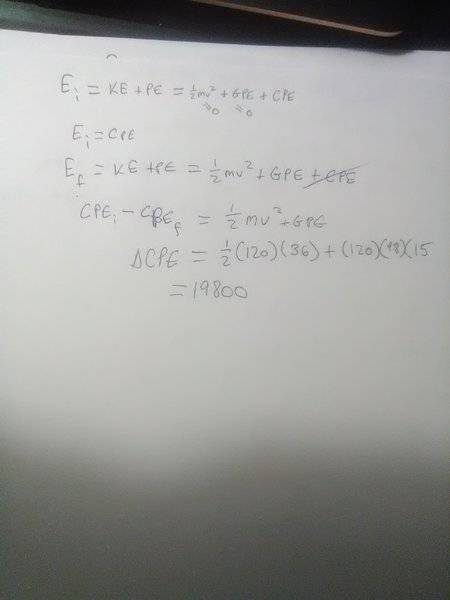 Ei = KE + PE = ½mv² + GPE + CPE
=0 =0
Ei = CPE
Ef = KE + PE = ½mv² + GPE + CPE
CPEi - CPEf = ½mv² + GPE
ΔCPE = ½(120)(36) + (120)(9.8)(15
= 19800